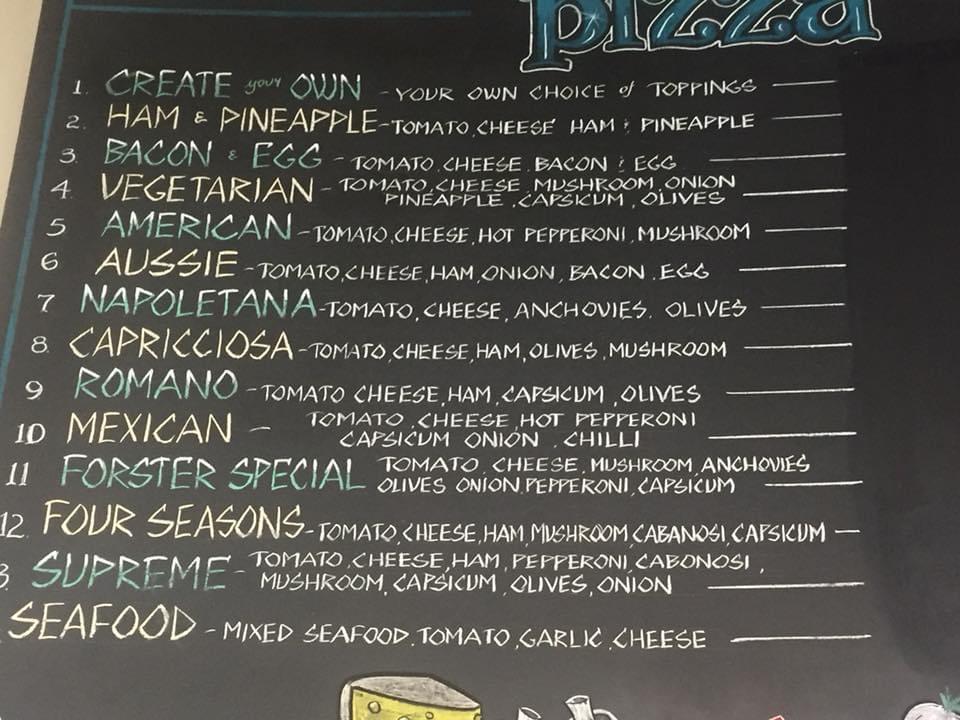 pizza
1. CREATE your OWN - YOUR OWN CHOICE of TOPPINGS
2. HAM & PINEAPPLE - TOMATO, CHEESE HAM & PINEAPPLE
3. BACON & EGG - TOMATO, CHEESE, BACON & EGG
4. VEGETARIAN - TOMATO, CHEESE, MUSHROOM, ONION
PINEAPPLE, CAPSICUM, OLIVES
5 AMERICAN - TOMATO, CHEESE, HOT PEPPERONI, MUSHROOM
6 AUSSIE - TOMATO, CHEESE, HAM, ONION, BACON, EGG
7 NAPOLETANA - TOMATO, CHEESE, ANCHOVIES, OLIVES
8. CAPRICCIOSA - TOMATO, CHEESE, HAM, OLIVES, MUSHROOM
9 ROMANO - TOMATO CHEESE, HAM, CAPSICUM, OLIVES
10 MEXICAN - TOMATO, CHEESE, HOT PEPPERONI
CAPSICUM ONION, CHILLI
11 FORSTER SPECIAL TOMATO, CHEESE, MUSHROOM, ANCHOVIES
OLIVES ONION, PEPPERONI, CAPSICUM
12. FOUR SEASONS - TOMATO, CHEESE, HAM, MUSHROOM, CABANOSI, CAPSICUM
3 SUPREME - TOMATO, CHEESE, HAM, PEPPERONI, CABONOSI,
MUSHROOM, CAPSICUM, OLIVES, ONION
SEAFOOD - MIXED SEAFOOD, TOMATO, GARLIC, CHEESE